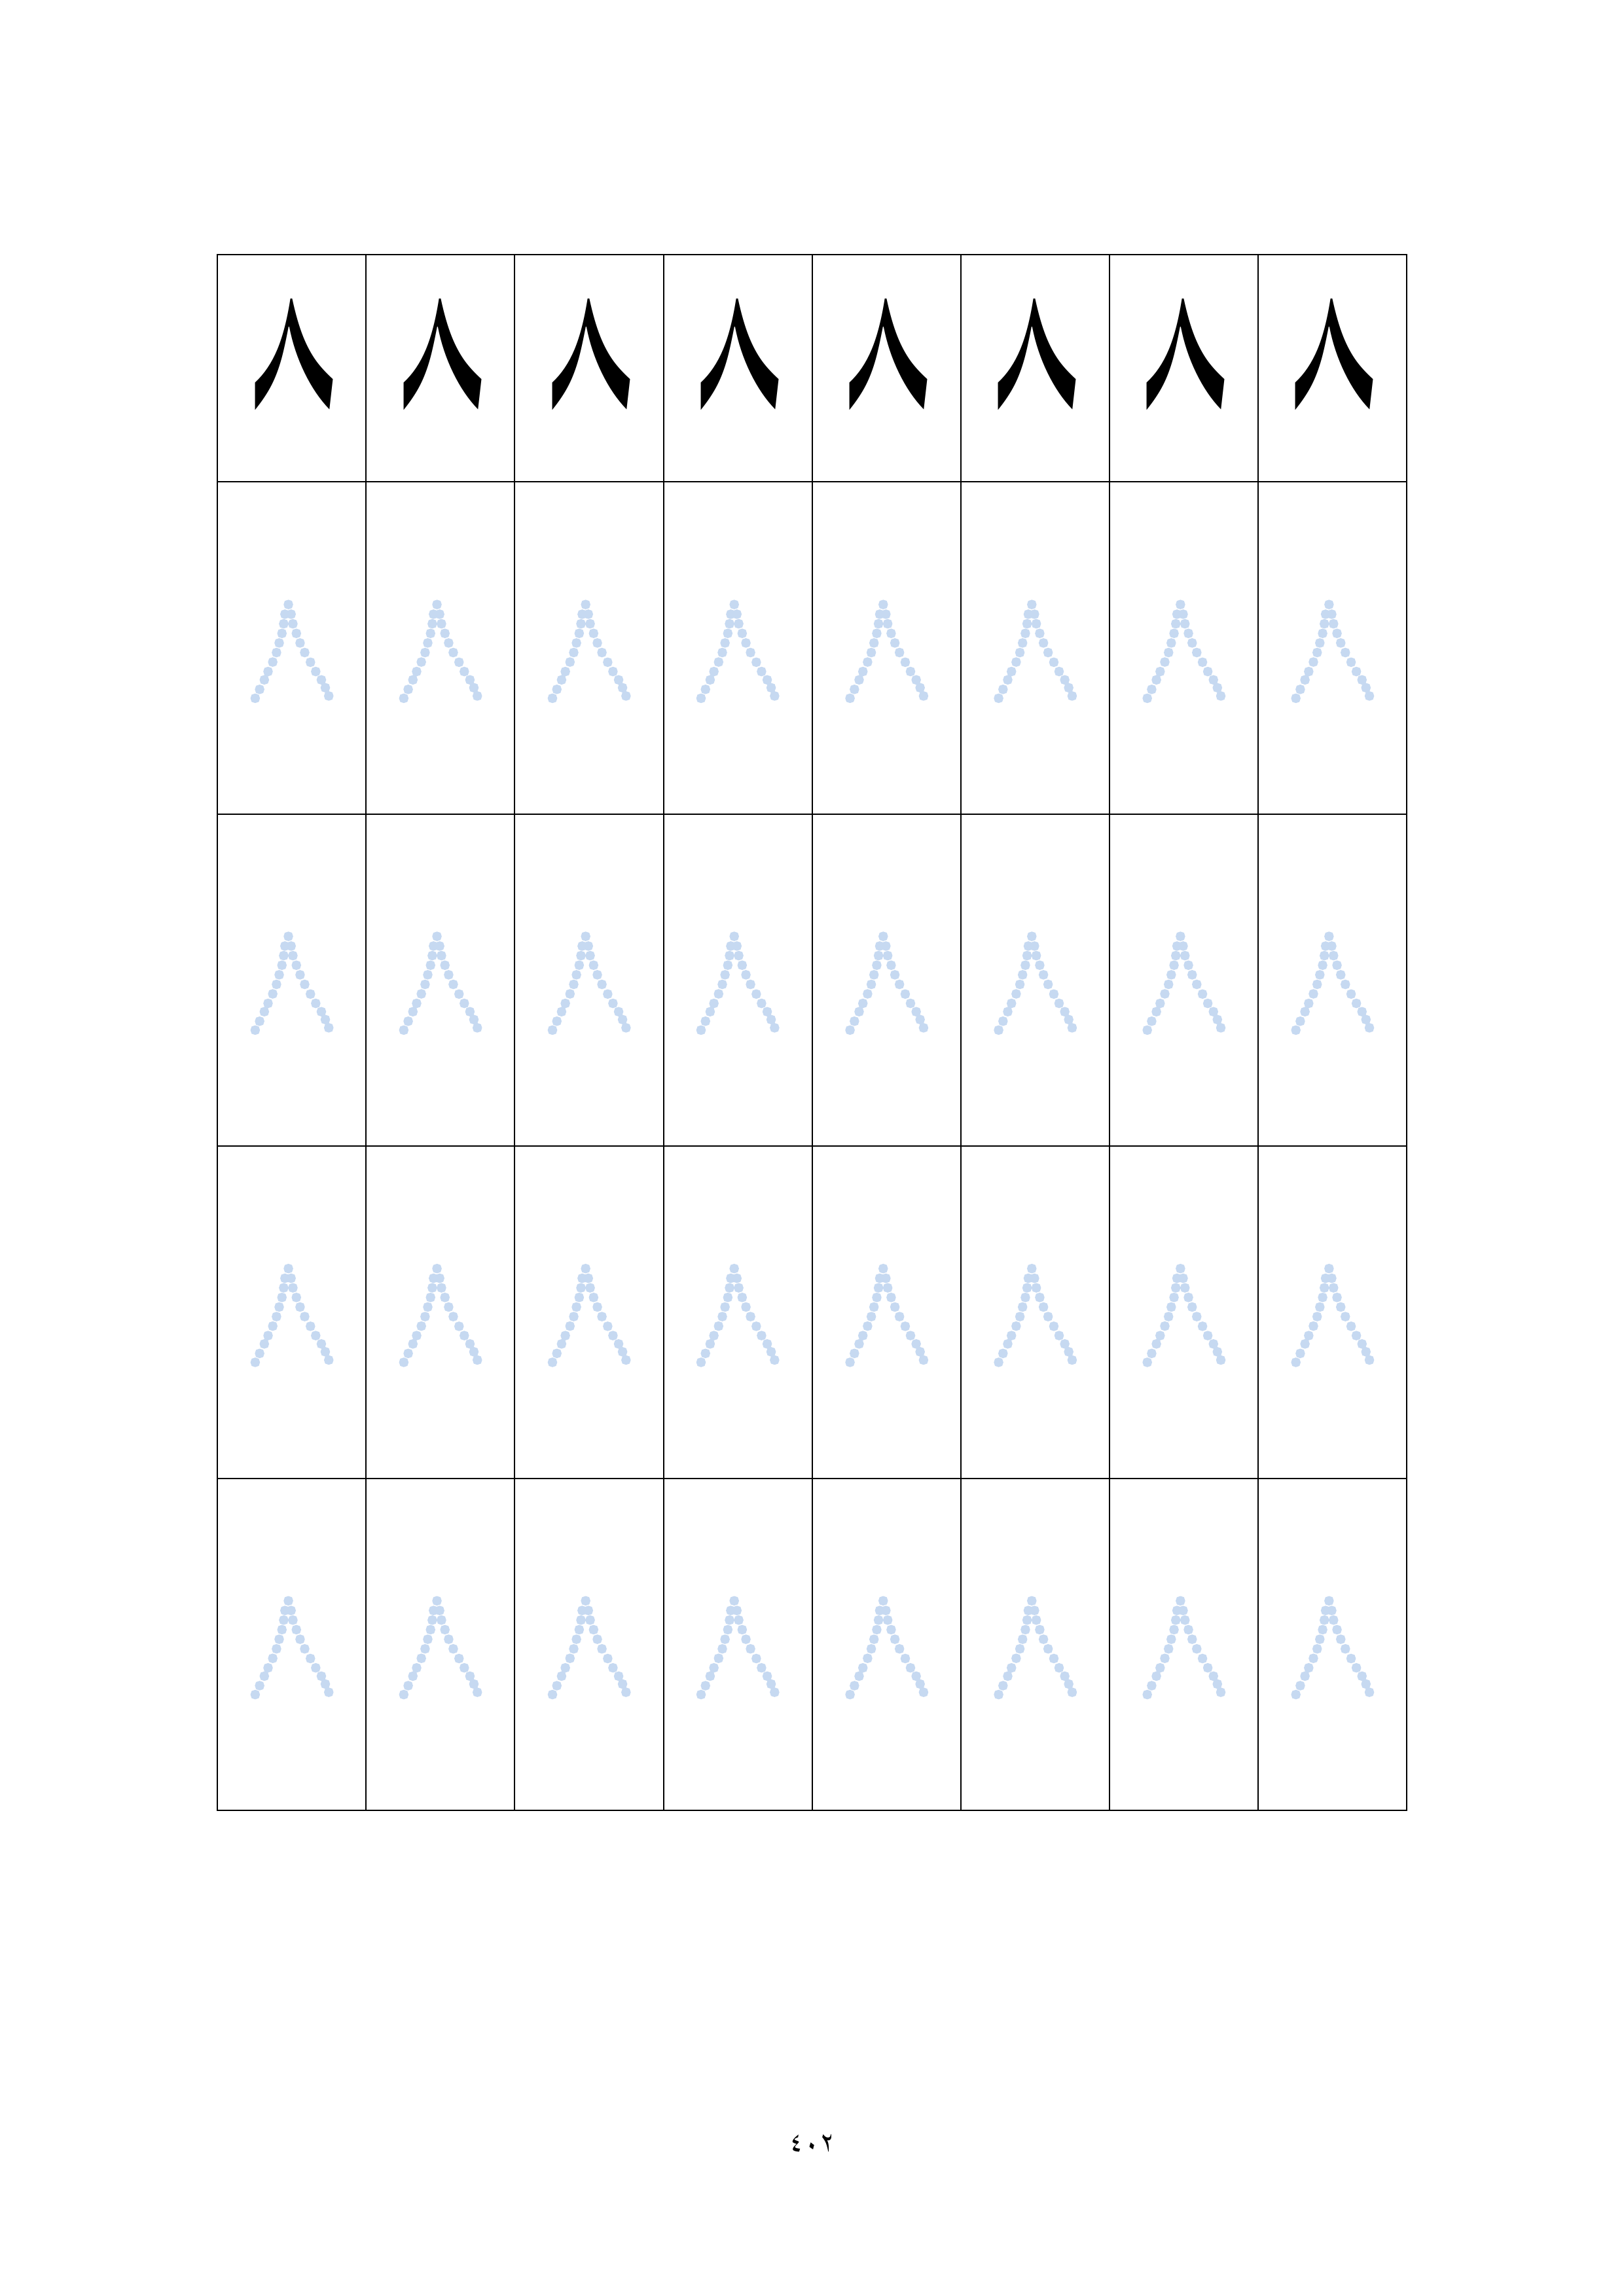 ٨ ٨ ٨ ٨ ٨ ٨ ٨ ٨
٨ ٨ ٨ ٨ ٨ ٨ ٨ ٨
٨ ٨ ٨ ٨ ٨ ٨ ٨ ٨
٨ ٨ ٨ ٨ ٨ ٨ ٨ ٨
٨ ٨ ٨ ٨ ٨ ٨ ٨ ٨
٤٠٢